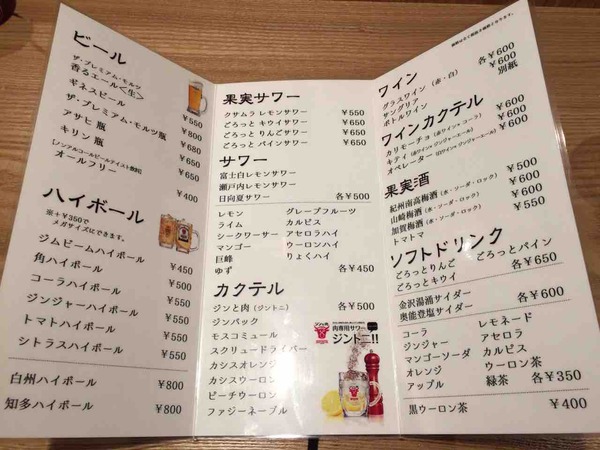 ビール
ザ・プレミアム・モルツ
香るエール＜生＞ ¥550
ギネスビール ¥800
ザ・プレミアム・モルツ瓶 ¥680
アサヒ 瓶 ¥650
キリン 瓶 ¥650
【ノンアルコールビールテイスト飲料】
オールフリー ¥400
ハイボール
※＋¥350で
メガサイズにできます。
ジムビームハイボール ¥450
角ハイボール ¥500
コーラハイボール ¥550
ジンジャーハイボール ¥550
トマトハイボール ¥550
シトラスハイボール ¥550
白州ハイボール ¥800
知多ハイボール ¥800
果実サワー
クサムラ レモンサワー ¥550
ごろっとキウイサワー ¥650
ごろっとりんごサワー ¥650
ごろっとパインサワー ¥650
サワー
富士白レモンサワー
瀬戸内レモンサワー
日向夏サワー 各¥500
レモン グレープフルーツ
ライム カルピス
シークワーサー アセロラハイ
マンゴー ウーロンハイ
巨峰 りょくハイ
ゆず 各¥450
カクテル
ジンと肉（ジントニ） 各¥500
ジンバック
モスコミュール
スクリュードライバー
カシスオレンジ
カシスウーロン
ピーチウーロン
ファジーネーブル
肉専用サワー
ジントニ!!
ワイン
グラスワイン（赤・白） 各¥600
サングリア ¥600
ボトルワイン 別紙
ワインカクテル
カリモーチョ（赤ワイン×コーラ） ¥600
キティ（赤ワイン×ジンジャーエール） ¥600
オペレーター（白ワイン×ジンジャーエール） ¥600
果実酒
紀州南高梅酒（水・ソーダ・ロック） ¥500
山崎梅酒（水・ソーダ・ロック） ¥600
加賀梅酒（水・ソーダ・ロック） ¥600
トマトマ ¥550
ソフトドリンク
ごろっとりんご ごろっとパイン
ごろっとキウイ 各¥650
金沢湯涌サイダー
奥能登塩サイダー 各¥600
コーラ レモネード
ジンジャー アセロラ
マンゴーソーダ カルピス
オレンジ ウーロン茶
アップル 緑茶 各¥350
黒ウーロン茶 ¥400